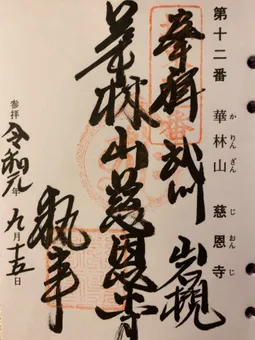 第十二番 華林山 慈恩寺
か りん ざん じ おん じ
奉拝 武州 岩槻
華林山慈恩寺
執事
参拝 令和元年九月十五日